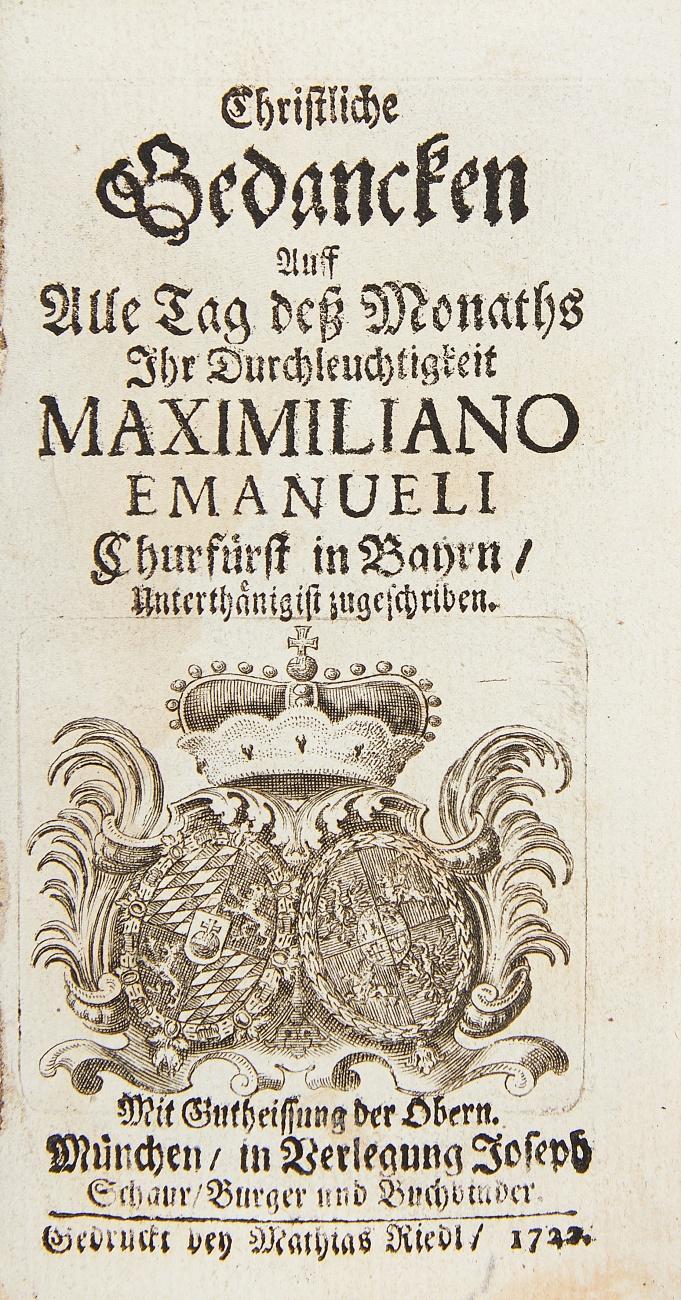 Christliche
Gedancken
Auff
Alle Tag deß Monaths
Ihr Durchleuchtigkeit
MAXIMILIANO
EMANUELI
Churfürst in Bayrn /
Unterthänigist zugeschriben.
Mit Gutheissung der Obern.
München / in Verlegung Joseph
Schaur / Burger und Buchbinder.
Gedruckt bey Mathias Riedl /